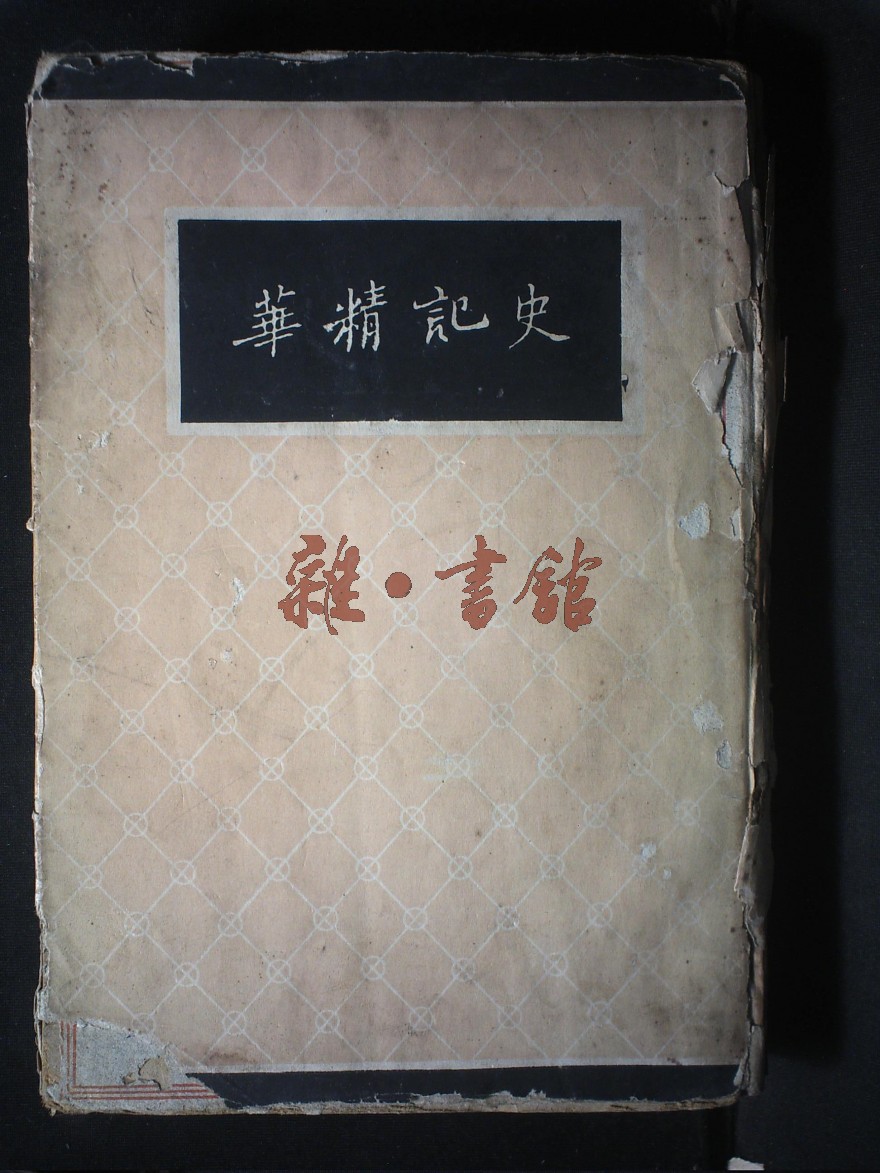 史記精華
雜·書館